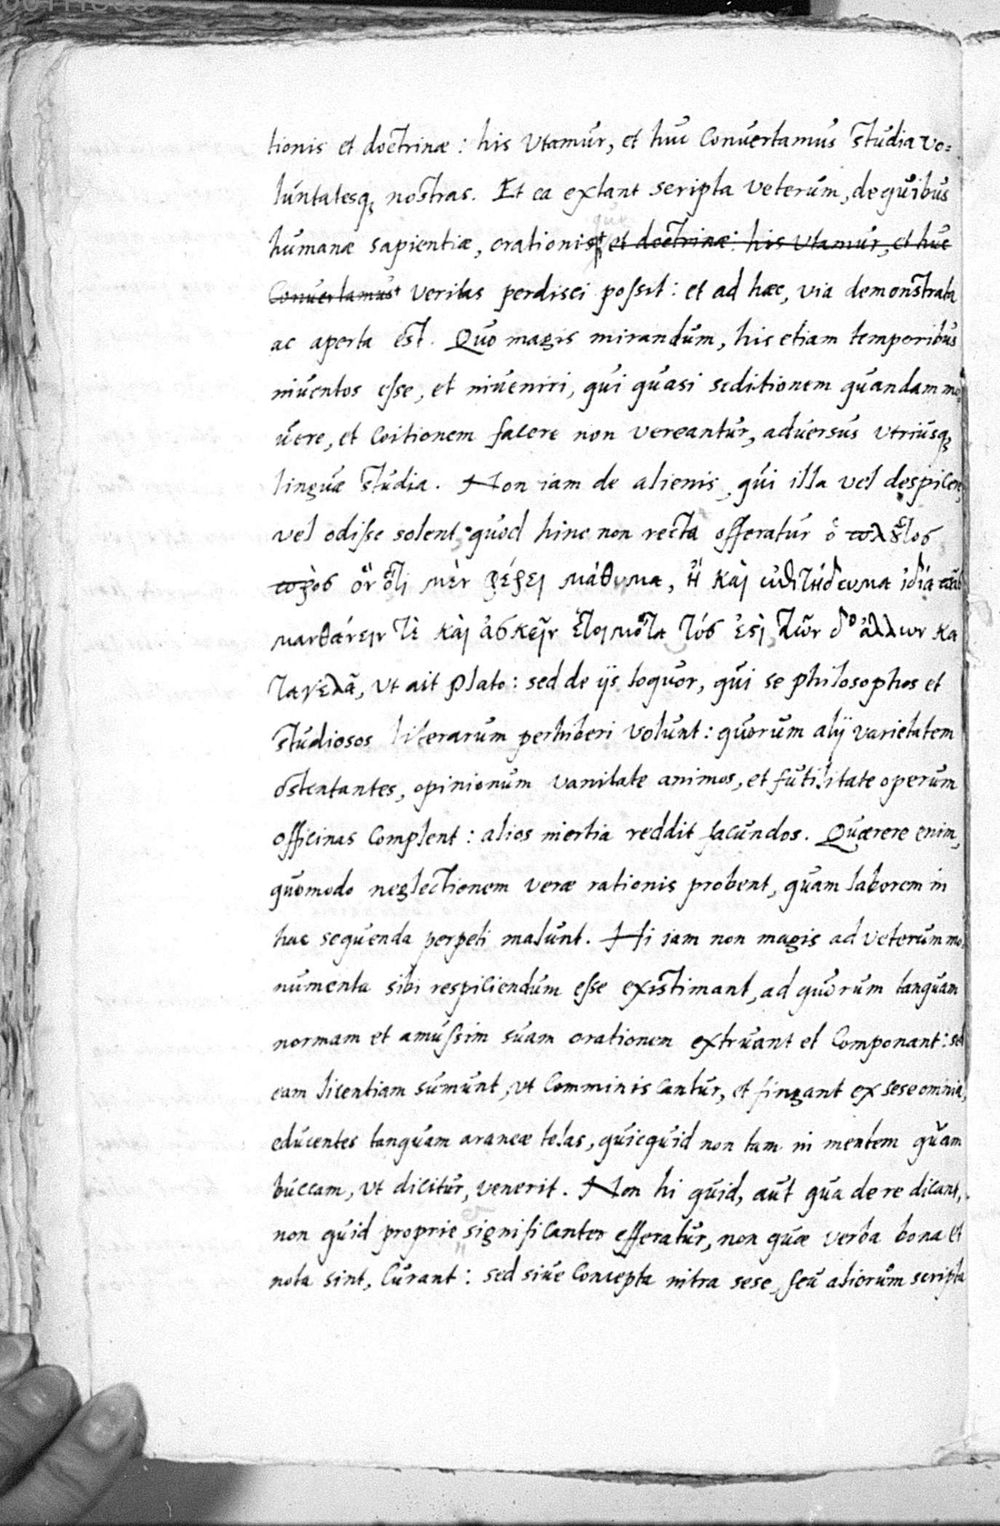 tionis et doctrinæ: his Vtamur, et huc Convertamus studia vo=
luntatesq; nostras. Et ea extant scripta veterum, de quibus
humanæ sapientiæ, orationisq; et doctrinæ: his Vtamur, et huc
Convertamus veritas perdisci possit: et ad hæc, via demonstrata
ac aperta est. Quo magis mirandum, his etiam temporibus
inventos esse, et inveniri, qui quasi seditionem quandam mo
uere, et Coitionem facere non vereantur, adversus vtriusq;
linguæ studia. Non iam de alienis, qui illa vel despicere,
vel odisse solent quod hinc non recta offeratur ὁ πλοῦτος
πρὸς ὃν ὅτι μὲν φέρει μάθημα, ἢ καὶ ἐπιτήδευμα ἰδίᾳ πᾶς
μανθάνειν τὲ καὶ ἀσκεῖν ἑτοιμότατός ἐστὶ, τῶν δ' ἄλλων κα
ταγελᾶ, vt ait Plato: sed de ijs loquor, qui se philosophos et
studiosos literarum perhiberi volunt: quorum alij varietatem
ostentantes, opinionum vanitate animos, et futilitate operum
officinas Complent: alios inertia reddit facundos. Quærere enim,
quomodo neglectionem veræ rationis probent, quam laborem in
hac sequenda perpeti malunt. Hi iam non magis ad veterum mo
numenta sibi respiciendum esse existimant, ad quorum tanquam
normam et amussim suam orationem extruant et Componant: sed
eam licentiam sumunt, vt Comminiscantur, et fingant ex sese omnia,
educentes tanquam araneæ telas, quicquid non tam in mentem quam
buccam, vt dicitur, venerit. Non hi quid, aut qua de re dicant,
non quid proprie significanter efferatur, non quæ verba bona et
nota sint, Curant: sed siue Concepta intra sese, seu aliorum scripta